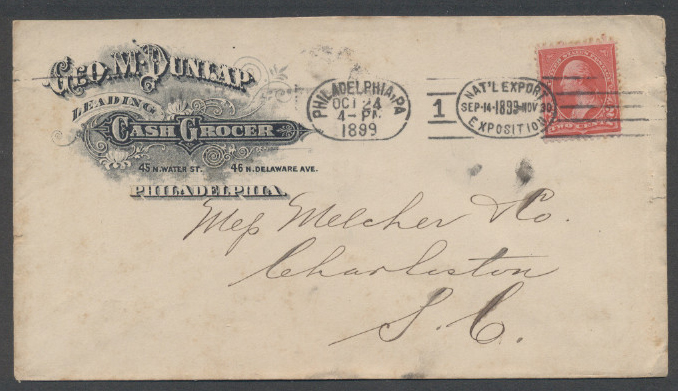 GEO. M. DUNLAP
LEADING
CASH GROCER
45 N. WATER ST. 46 N. DELAWARE AVE.
PHILADELPHIA.
PHILADELPHIA, PA
OCT 24
4-PM
1899
1
NAT'L EXPORT
SEP-14-1899-NOV 30
EXPOSITION
Mess Melcher & Co.
Charleston
S. C.